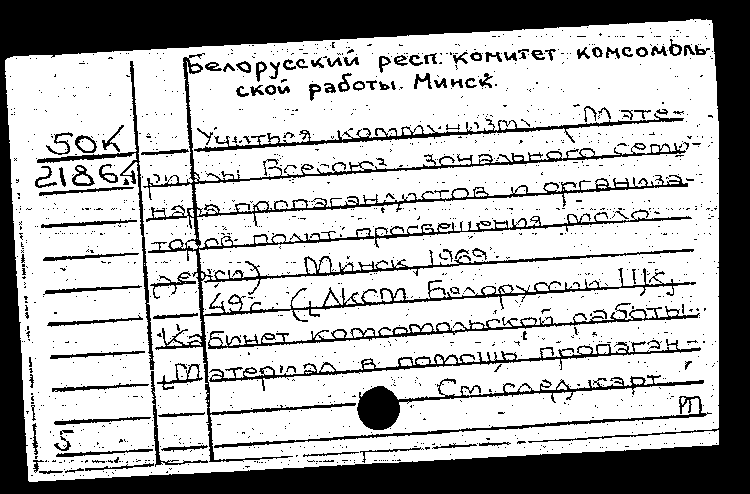 Белорусский респ. комитет комсомоль-
ской работы. Минск.
50К
21864
Учиться коммунизму. (Мате-
риалы Всесоюз. зонального семи-
нара пропагандистов и организа-
торов полит. просвещения моло-
дежи). Минск, 1969.
49 с. (ЛКСМ Белоруссии. ЦК,
Кабинет комсомольской работы.
Материал в помощь пропаган-
См. след. карт.
5
т